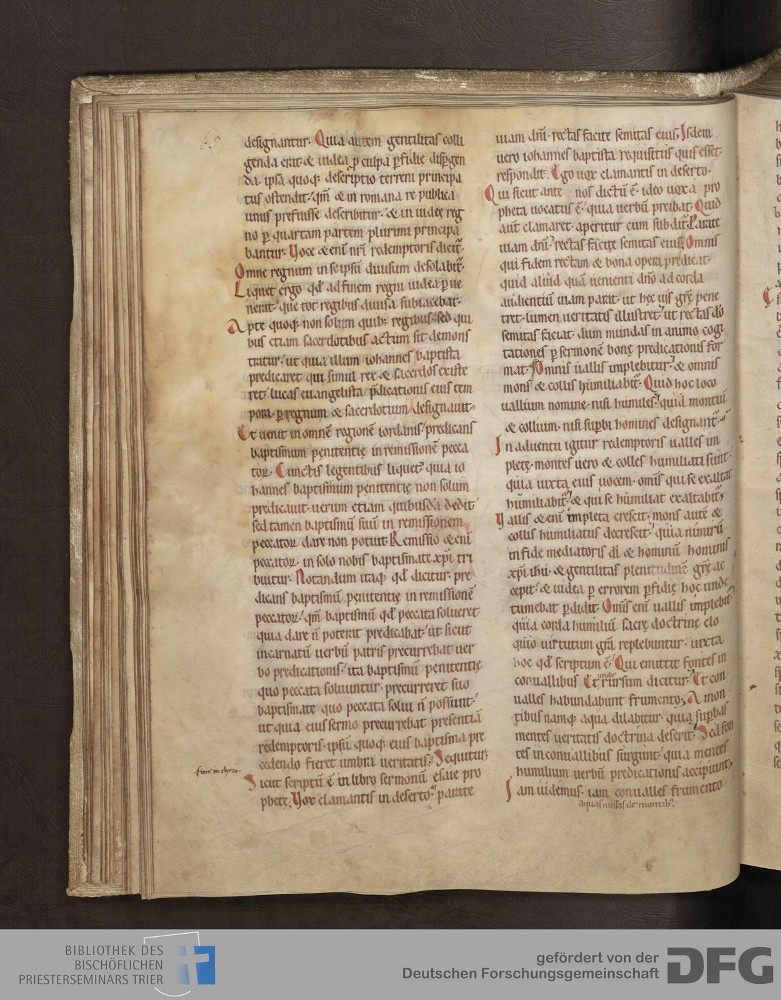 65
designantur. Quia autem gentilitas colli
genda erat & iudea ꝑ culpa ꝑfidię dispgen
da. ipsa quoq; descriptio terreni principa
tus ostendit. qm̄ & in romana re publica
unus prefuisse describitur. & in iudee reg
no ꝑ quartam partem plurimi principa
bantur. Voce & eni nr̄i redemptoris dicit᷑.
Omne regnum in se ipsū diuisum desolabit᷑.
Liquet ergo qd̄ ad finem regni iudea ꝑue
nerat. que tot regibus diuisa subiacebat.
Apte quoq; non solum quib; regibus. sed qui
bus etiam sacerdotibus actum sit demons
tratur. ut quia illum iohannes baptista
predicaret qui simul rex & sacerdos existe
ret. lucas euangelista p̄dicationis eius tem
pora. ꝑ regnum & sacerdotium designauit.
Et uenit in omnē regionē iordanis. predicans
baptismum penitentię in remissionē pecca
tor. Cunctis legentibus liquet. quia io
hannes baptismum penitentię non solum
predicauit. uerum etiam quibusdā dedit.
sed tamen baptismū suū in remissionem
peccator dare non potuit. Remissio & enī
peccator. in solo nobis baptismate xp̄i tri
buitur. Notandum itaq; qd̄ dicitur. pre
dicans baptismū penitentię in remissionē
peccator. qm̄ baptismū qd̄ peccata solueret
quia dare n̄ poterat predicabat. ut sicut
incarnatū uerbū patris precurrebat uer
bo predicationis. ita baptismū penitentię
quo peccata soluuntur. precurreret suo
baptismate quo peccata solui n̄ possunt.
ut quia eius sermo precurrebat presentiā
redemptoris. ipsū quoq; eius baptisma pre
cedendo fieret umbra ueritatis. Sequitur.
Sicut scriptū ē in libro sermonū esaie pro
phetę. Vox clamantis in deserto. parate
uiam dn̄i. rectas facite semitas eius. Isdem
uero iohannes baptista requisitus quis esset.
respondit. Ego uox clamantis in deserto.
Qui sicut ante nos dictū ē. ideo uox a pro
pheta uocatus ē. quia uerbū preibat. Quid
aūt clamaret. aperitur cum subdit᷑. Parate
uiam dn̄i. rectas facite semitas eius. Omnis
qui fidem rectam & bona opera predicat.
quid aliud quā uenienti dn̄o ad corda
audientiū uiam parat. ut hęc uis grę pene
tret. lumen ueritatis illustret. ut rectas dō
semitas faciat. dum mundas in animo cogi
tationes ꝑ sermonē bonę predicationis for
mat. Omnis uallis implebitur. & omnis
mons & collis humiliabit᷑. Quid hoc loco
uallium nomine. nisi humiles. quid montiū
& collium. nisi suꝑbi homines designant᷑.
In aduentu igitur redemptoris ualles im
pletę. montes uero & colles humiliati sunt.
quia iuxta eius uocem. omis qui se exaltat
humiliabit᷑. & qui se humiliat exaltabit᷑.
Vallis & enī impleta crescit. mons autē &
collis humiliatus decrescit. quia nimirū
in fide mediatoris dī & hominū hominis
xp̄i ihū. & gentilitas plenitudinē grę ac
cepit. & iudea ꝑ errorem ꝑfidię hoc unde
tumebat ꝑdidit. Omis eni uallis implebit᷑
quia corda humiliū sacrę doctrinę elo
quio uirtutum grā replebuntur. iuxta
hoc qd̄ scriptum ē. Qui emittit fontes in
conuallibus. Et rursum dicitur. Et con
unde
ualles habundabunt frumento. A mon
tibus namq; aqua dilabitur. quia suꝑbas
mentes ueritatis doctrina deserit. Sed fon
tes in conuallibus surgunt. quia mentes
humilium uerbū predicationis accipiunt.
Iam uidemus. iam conualles frumento
aquas missas de montib;
BIBLIOTHEK DES
BISCHÖFLICHEN
PRIESTERSEMINARS TRIER
gefördert von der
Deutschen Forschungsgemeinschaft
DFG